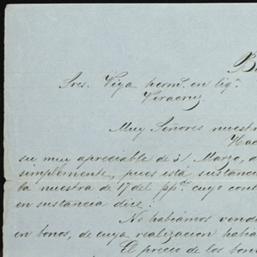 B
Sres. Viya hermº. en liqº.
Veracruz
Muy Señores nuestr
Hac
su muy apreciable de 31 Marzo,
simplemente, pues está sustancia
ba nuestra de 17 del ppdº. cuyo cont
en sustancia dice:
No habiamos vend
en bonos, de cuya realizacion habia
El precio de los bon